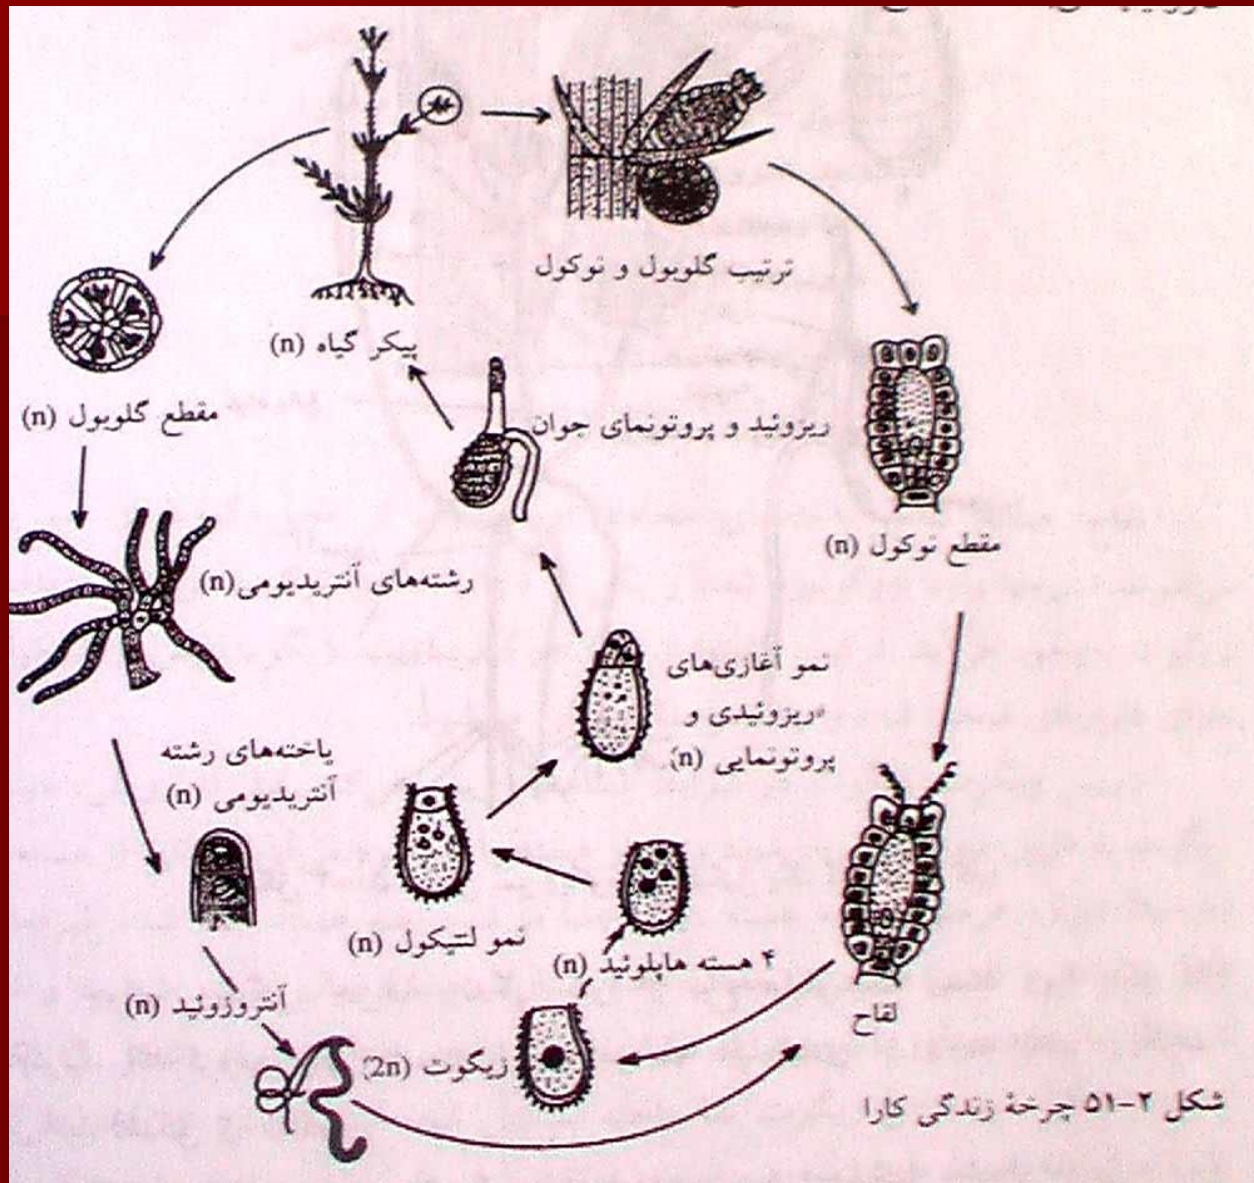 ترتیب گلوبول و نوکول
پیکر گیاه (n)
مقطع گلوبول (n)
ریزوئید و پروتونمای جوان
مقطع نوکول (n)
رشته‌های آنتریدیومی (n)
نمو آغازی‌های
ریزوئیدی و
پروتونمایی (n)
یاخته‌های رشته
آنتریدیومی (n)
نمو لنتیکول (n)
۴ هسته هاپلوئید (n)
آنتروزوئید (n)
لقاح
زیکوت (2n)
شکل ۲-۵۱ چرخهٔ زندگی کارا